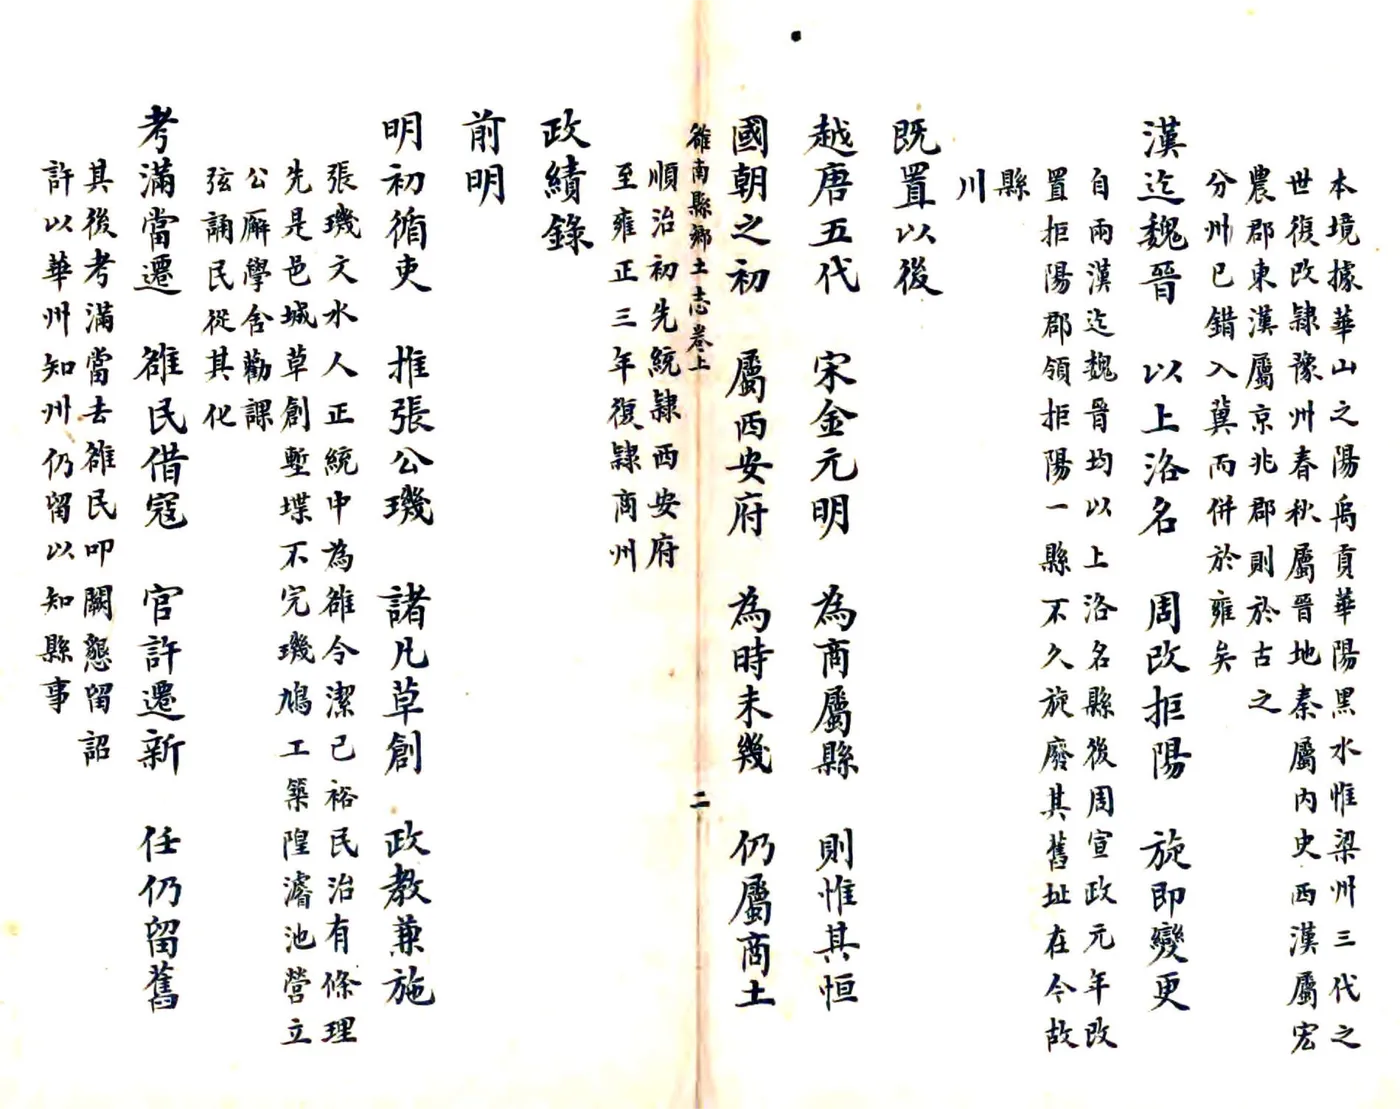 本境據華山之陽禹貢華陽黑水惟梁州三代之
世復改隸豫州春秋屬晉地秦屬內史西漢屬宏
農郡東漢屬京兆郡則於古之
分州已錯入冀而併於雍矣
漢迄魏晉　以上洛名　周改拒陽　旋即變更
自兩漢迄魏晉均以上洛名縣後周宣政元年改
置拒陽郡領拒陽一縣不久旋廢其舊址在今故
縣
川
既置以後
越唐五代　宋金元明　為商屬縣　則惟其恒
國朝之初　屬西安府　為時未幾　仍屬商土
雒南縣鄉土志卷上　二
順治初先統隸西安府
至雍正三年復隸商州
政績錄
前明
明初循吏　推張公璣　諸凡草創　政教兼施
張璣文水人正統中為雒令潔己裕民治有條理
先是邑城草創塹堞不完璣鳩工築隍濬池營立
公廨學舍勸課
弦誦民從其化
考滿當遷　雒民借寇　官許遷新　任仍留舊
其後考滿當去雒民叩闕懇留詔
許以華州知州仍留以知縣事